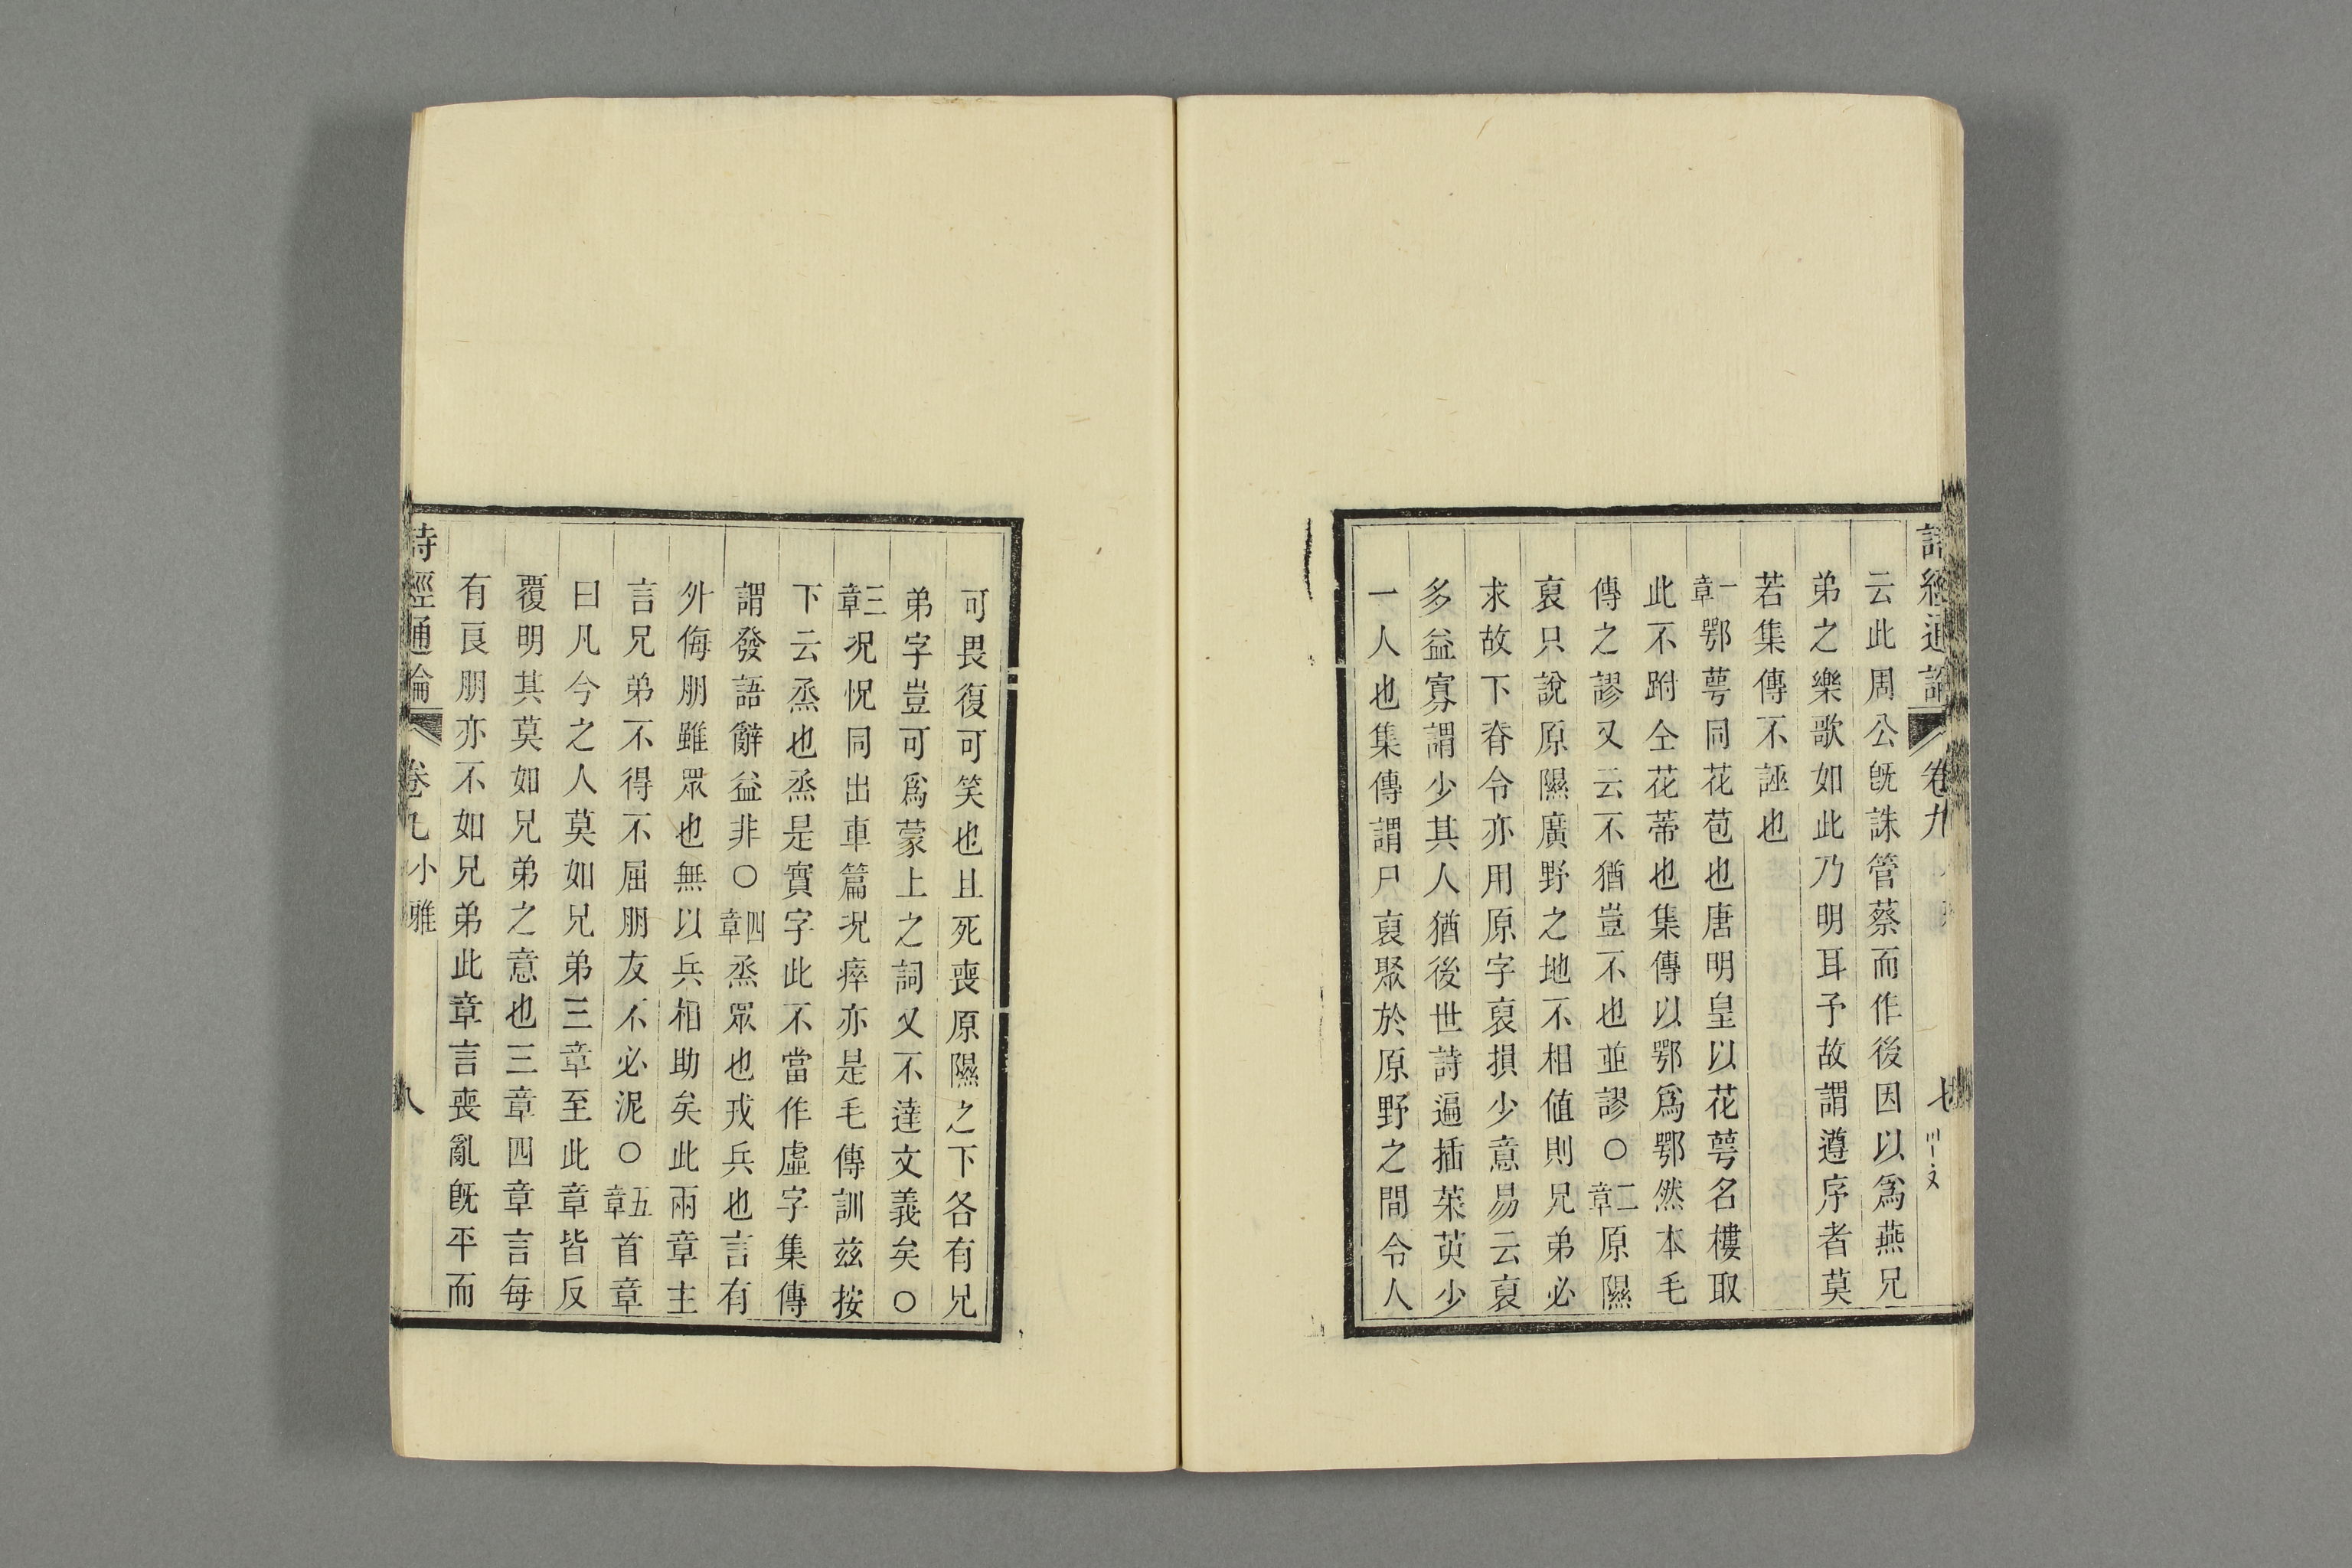 詩經通論 卷九 七
云此周公旣誅管蔡而作後因以爲燕兄
弟之樂歌如此乃明耳予故謂遵序者莫
若集傳不誣也
一章鄂萼同花苞也唐明皇以花萼名樓取
此不跗仝花蒂也集傳以鄂爲鄂然本毛
傳之謬又云不猶豈不也並謬○二章原隰
裒只說原隰廣野之地不相値則兄弟必
求故下脊令亦用原字裒損少意易云裒
多益寡謂少其人猶後世詩遍插茱萸少
一人也集傳謂尸裒聚於原野之間令人
可畏復可笑也且死喪原隰之下各有兄
弟字豈可爲蒙上之詞又不達文義矣○
三章況怳同出車篇況瘁亦是毛傳訓兹按
下云烝也烝是實字此不當作虛字集傳
謂發語辭益非○四章烝眾也戎兵也言有
外侮朋雖眾也無以兵相助矣此兩章主
言兄弟不得不屈朋友不必泥○五章首章
曰凡今之人莫如兄弟三章至此章皆反
覆明其莫如兄弟之意也三章四章言每
有良朋亦不如兄弟此章言喪亂旣平而
詩經通論 卷九 小雅 八